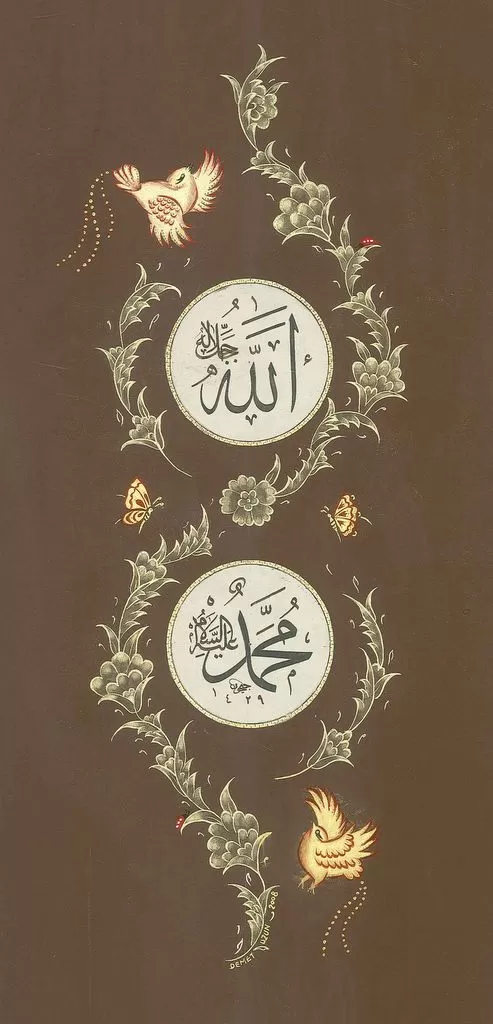 الله
جل جلاله
محمد
عليه السلام
١٤٢٩
DEMET UZUN 2008